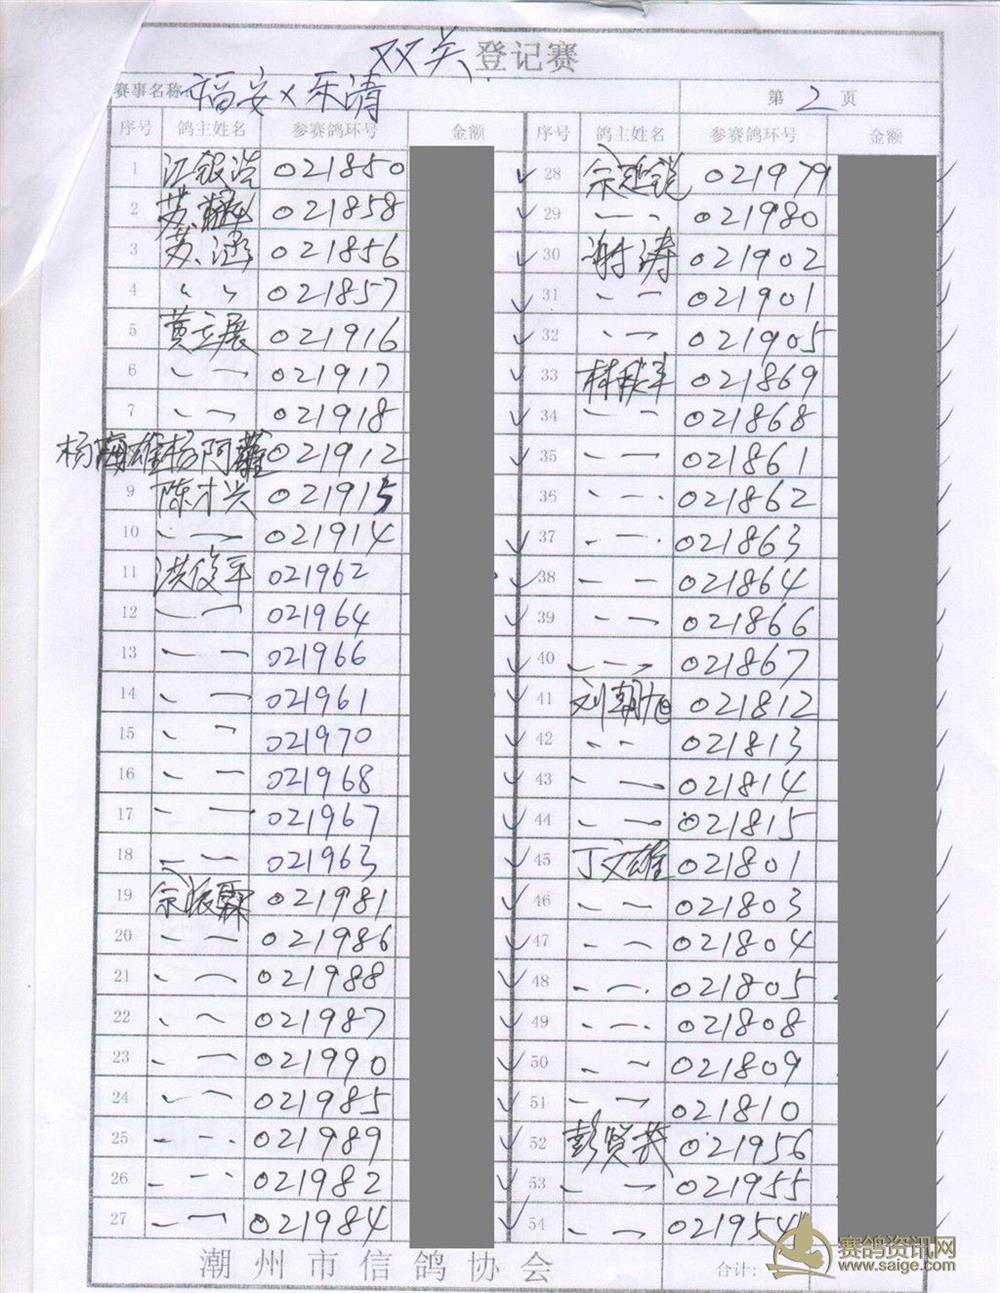 双关登记赛
赛事名称: 福安×乐清 第 2 页
序号 鸽主姓名 参赛鸽环号 金额
1 江银浩 021850
2 苏 021858
3 苏涵 021856
4 〃 〃 021857
5 黄立展 021916
6 〃 021917
7 〃 021918
杨海雄 杨阿 021912
9 陈才兴 021915
10 〃 021914
11 洪俊平 021962
12 〃 021964
13 〃 021966
14 〃 021961
15 〃 021970
16 〃 021968
17 〃 021967
18 〃 021963
19 余振霖 021981
20 〃 021986
21 〃 021988
22 〃 021987
23 〃 021990
24 〃 021985
25 〃 021989
26 〃 021982
27 〃 021984
序号 鸽主姓名 参赛鸽环号 金额
28 余 021979
29 〃 021980
30 谢涛 021902
31 〃 021901
32 〃 021905
33 林 平 021869
34 〃 021868
35 〃 021861
36 〃 021862
37 〃 021863
38 〃 021864
39 〃 021866
40 〃 021867
41 刘朝旭 021812
42 〃 021813
43 〃 021814
44 〃 021815
45 丁文雄 021801
46 〃 021803
47 〃 021804
48 〃 021805
49 〃 021808
50 〃 021809
51 〃 021810
52 彭贤 021956
53 〃 021955
54 〃 021954
潮州市信鸽协会 合计:
赛鸽资讯网
www.saige.com